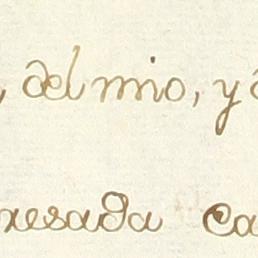 , del mio, y
xesada Ca